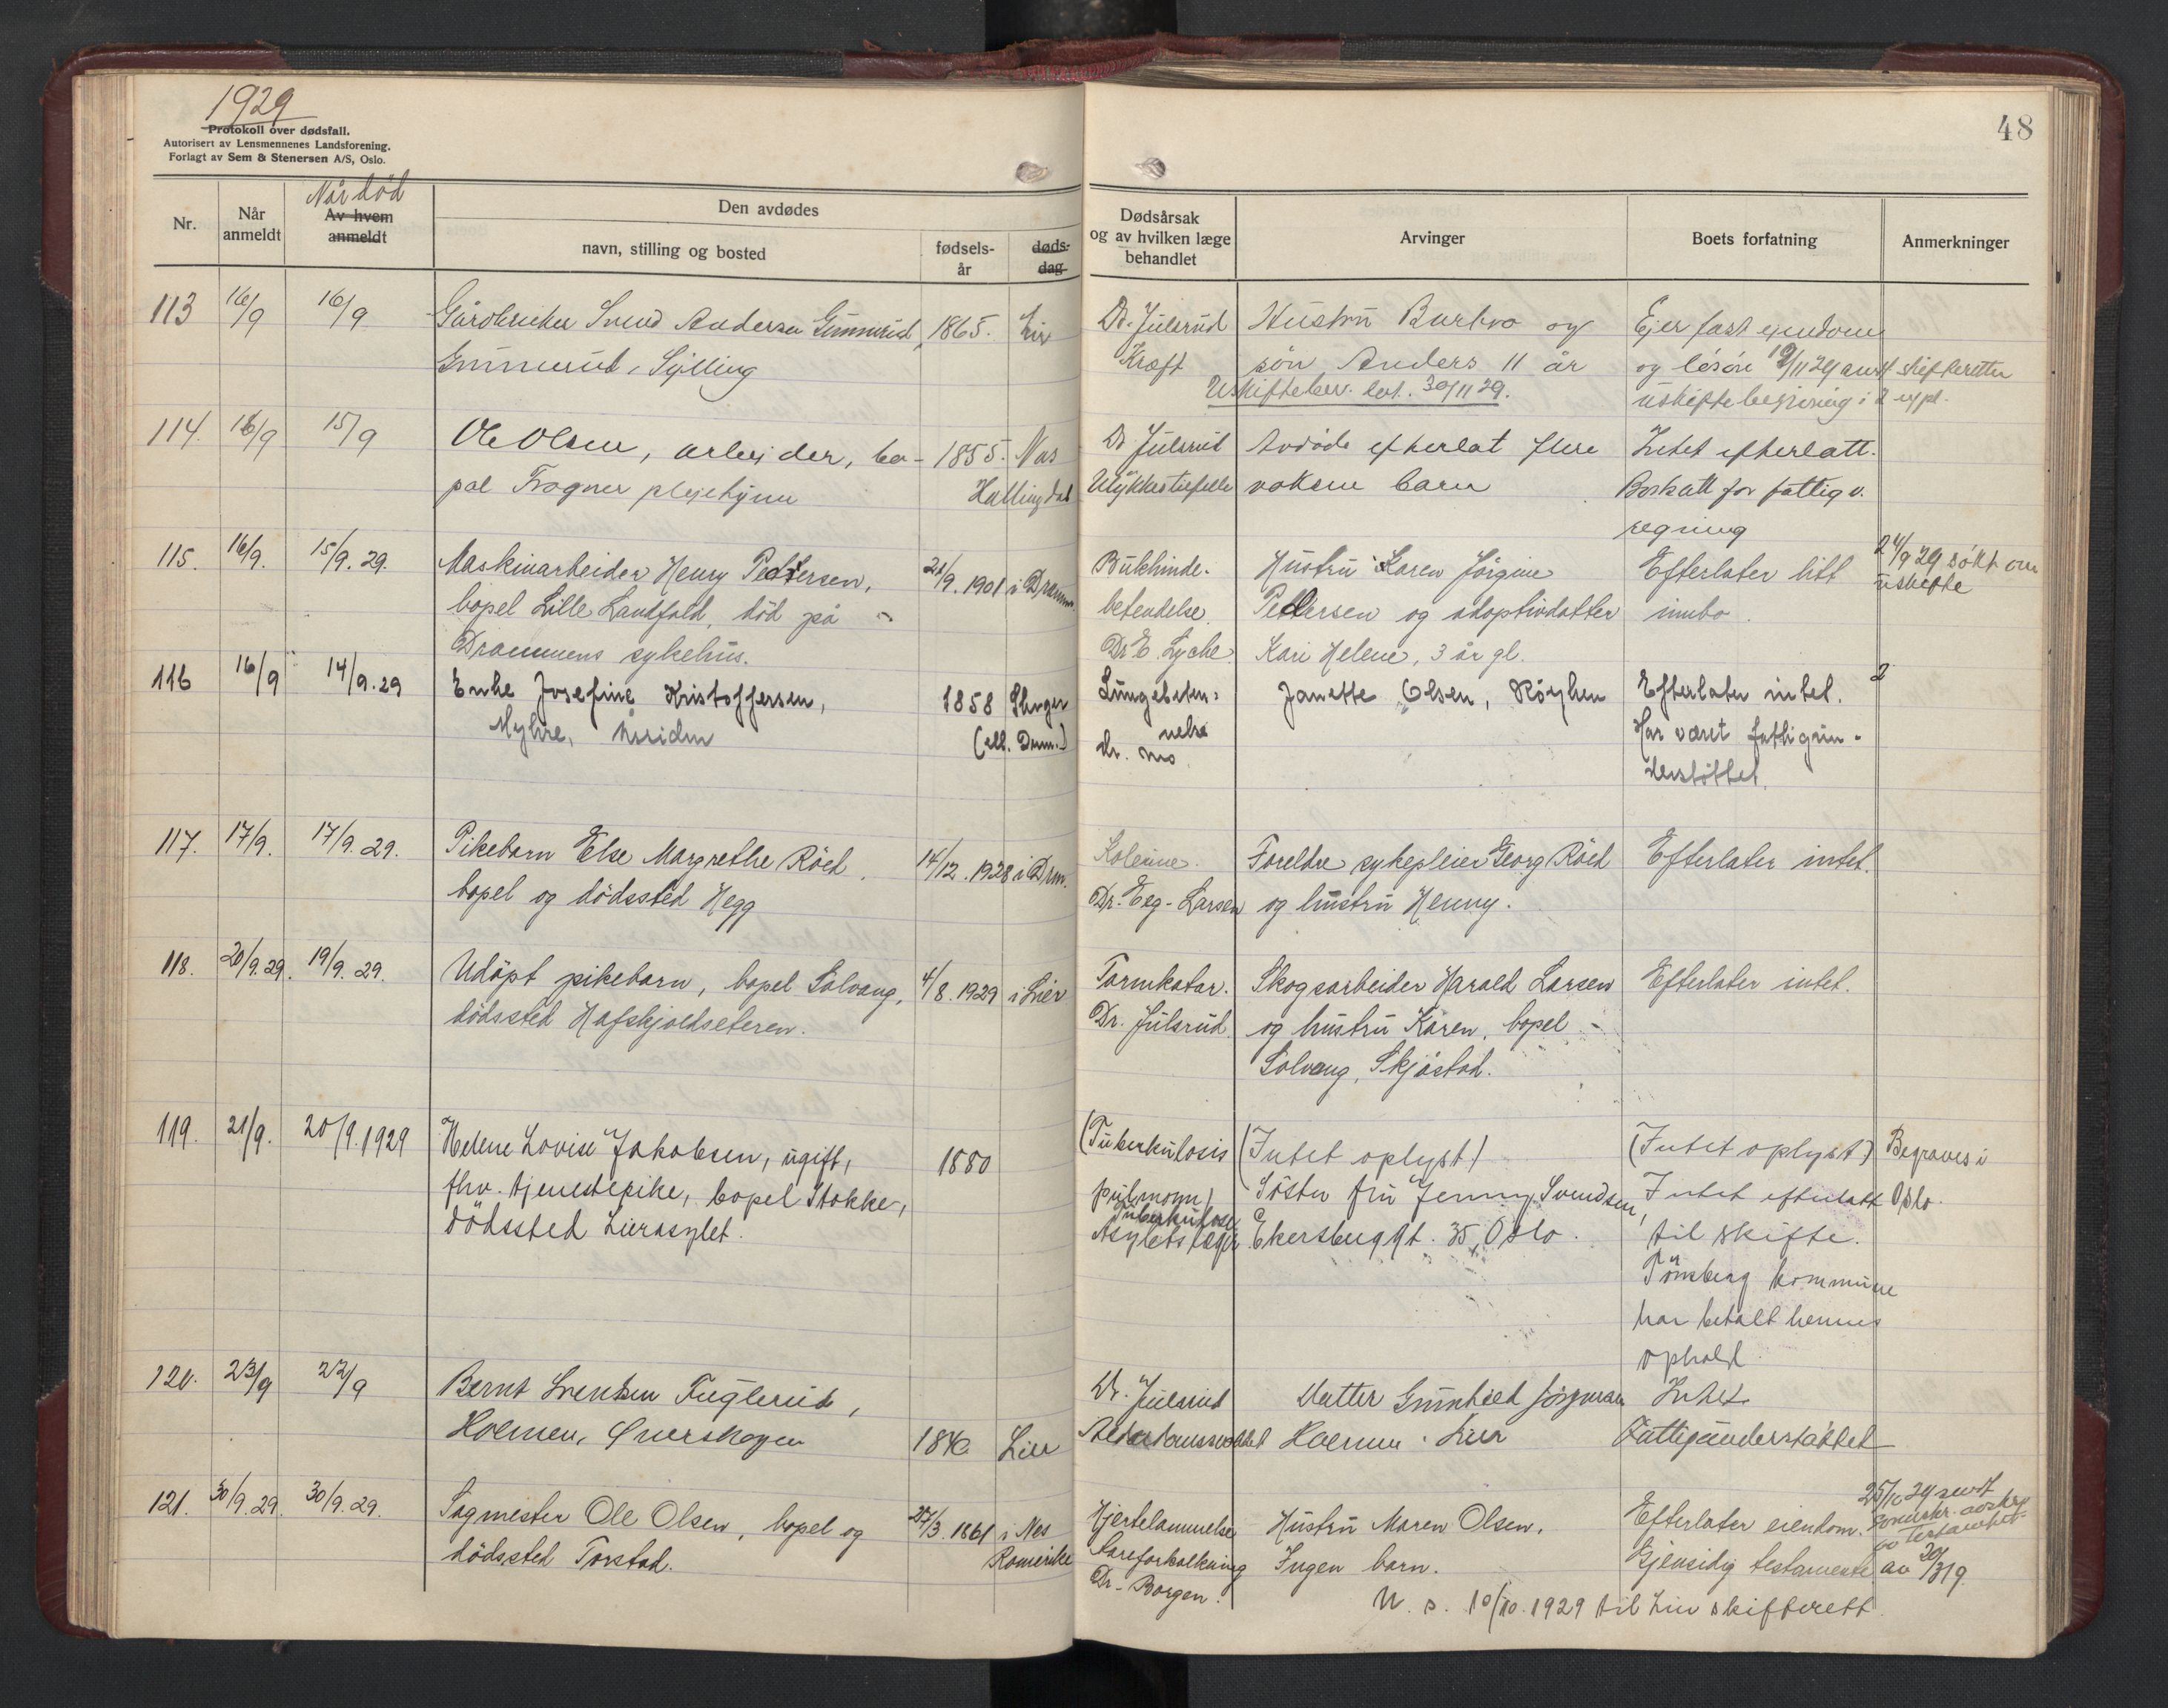 1929
Protokoll over dødsfall.
Autorisert av Lensmennenes Landsforening.
Forlagt av Sem & Stenersen A/S, Oslo.
48
Nr.
Når anmeldt
Når død
Av hvem anmeldt
Den avdødes
navn, stilling og bosted
fødsels-år
døds-dag
Dødsårsak og av hvilken læge behandlet
Arvinger
Boets forfatning
Anmerkninger
113 16/9 16/9 Gårdbruker Svend Andersen Gunnerud, 1865. Lir Dr. Julsrud Hustru Barbro og Ejer fast ejendom
Gunnerud, Sylling Kræft søn Anders 11 år og løsøre 19/11 29 skifteretten
Uskiftebev. 30/11 29. uskiftebegjæring i 2 expl.
114. 16/9 15/9 Ole Olsen, arbejder, bo- 1855. Nes Dr Julsrud Avdøde efterlot flere Intet efterlatt.
pæl Frogner plejehjem Hallingdal Ulykkestilfelle voksne barn for fattigv.
regning
115. 16/9. 15/9. 29. Maskinarbeider Henry Pettersen, 21/9. 1901 i Dramm. Bukhinde- Hustru Karen Jørgine Efterlater litt 24/9 29 søkt om
bopel Lille Landfald, død på betendelse. Pettersen og adoptivdatter innbo. uskifte
Drammens sykehus. Dr E. Lyche. Kari Helene, 3 år gl.
116 16/9 14/9. 29 Enke Josefine Kristoffersen, 1858 Skoger Lungebeten- Janette Olsen, Røyken Efterlater intet. 2
Myhre, (ell. Dram.) nelse Har været fattigun-
Dr. Mo derstøttet.
117. 17/9. 17/9. 29. Pikebarn Else Margrethe Röed, 14/12. 1928 i Drm. Kolerine. Foreldre sykepleier Georg Röed Efterlater intet.
bopel og dödssted Hegg Dr. Eeg-Larsen og hustru Henny.
118. 20/9. 29. 19/9. 29. Udöpt pikebarn, bopel Solvang, 4/8. 1929 i Lier Tarmkatar. Skogsarbeider Harald Larsen Efterlater intet.
dödssted Hafskjoldseteren. Dr. Julsrud. og hustru Karen, bopel
Solvang, Skjöstad.
119. 21/9. 20/9. 1929 Helene Lovise Jakobsen, ugift, 1880 (Tuberkulosis (Intet oplyst) (Intet oplyst) Begraves i
fhv. tjenestepike, bopel Stokke, pulmon.) Söster fru Jenny Svendsen, Intet efterlatt Oslo.
dödssted Lierasylet. Tuberkulose Asylets læger. Ekersberggt. 35, Oslo. til skifte.
Tönsberg kommune
har betalt hennes
ophold.
120. 23/9 22/9 Bernt Svendsen Fuglerud, Dr. Julsrud Datter Gunhild Jörgensen Intet
Holmen, 1840. Lier Holmen Lier Fattigunderstöttet
121. 30/9. 29. 30/9. 29. Sagmester Ole Olsen, bopel og 27/3. 1861 i Nes Hjertelammelse Hustru Maren Olsen. Efterlater eiendom. 25/10 29 sendt
dödssted Torstad. Romerike Åreforkalkning Ingen barn. Gjensidig testamente av 20/3 19.
Dr. Borgen. 10/10. 1929 til Lier skifterett.